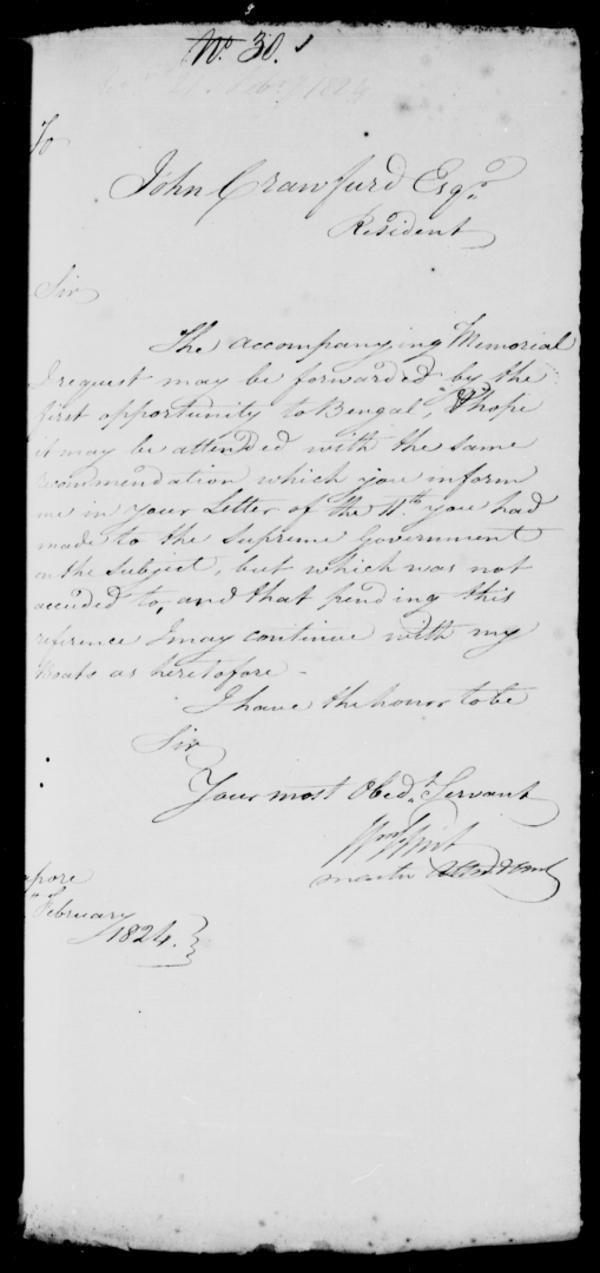 No. 30.
Feby 1824
To
John Crawfurd Esqr.
Resident
Sir
The accompanying Memorial
I request may be forwarded by the
first opportunity to Bengal, & I hope
it may be attended with the same
recommendation which you inform
me in your Letter of the 11th. you had
made to the Supreme Government
on the subject, but which was not
acceded to, and that pending this
reference I may continue with my
Boats as heretofore -
I have the honor to be
Sir
Your most Obedt. Servant
Wm Flint
Master Attendant
apore
February
1824.